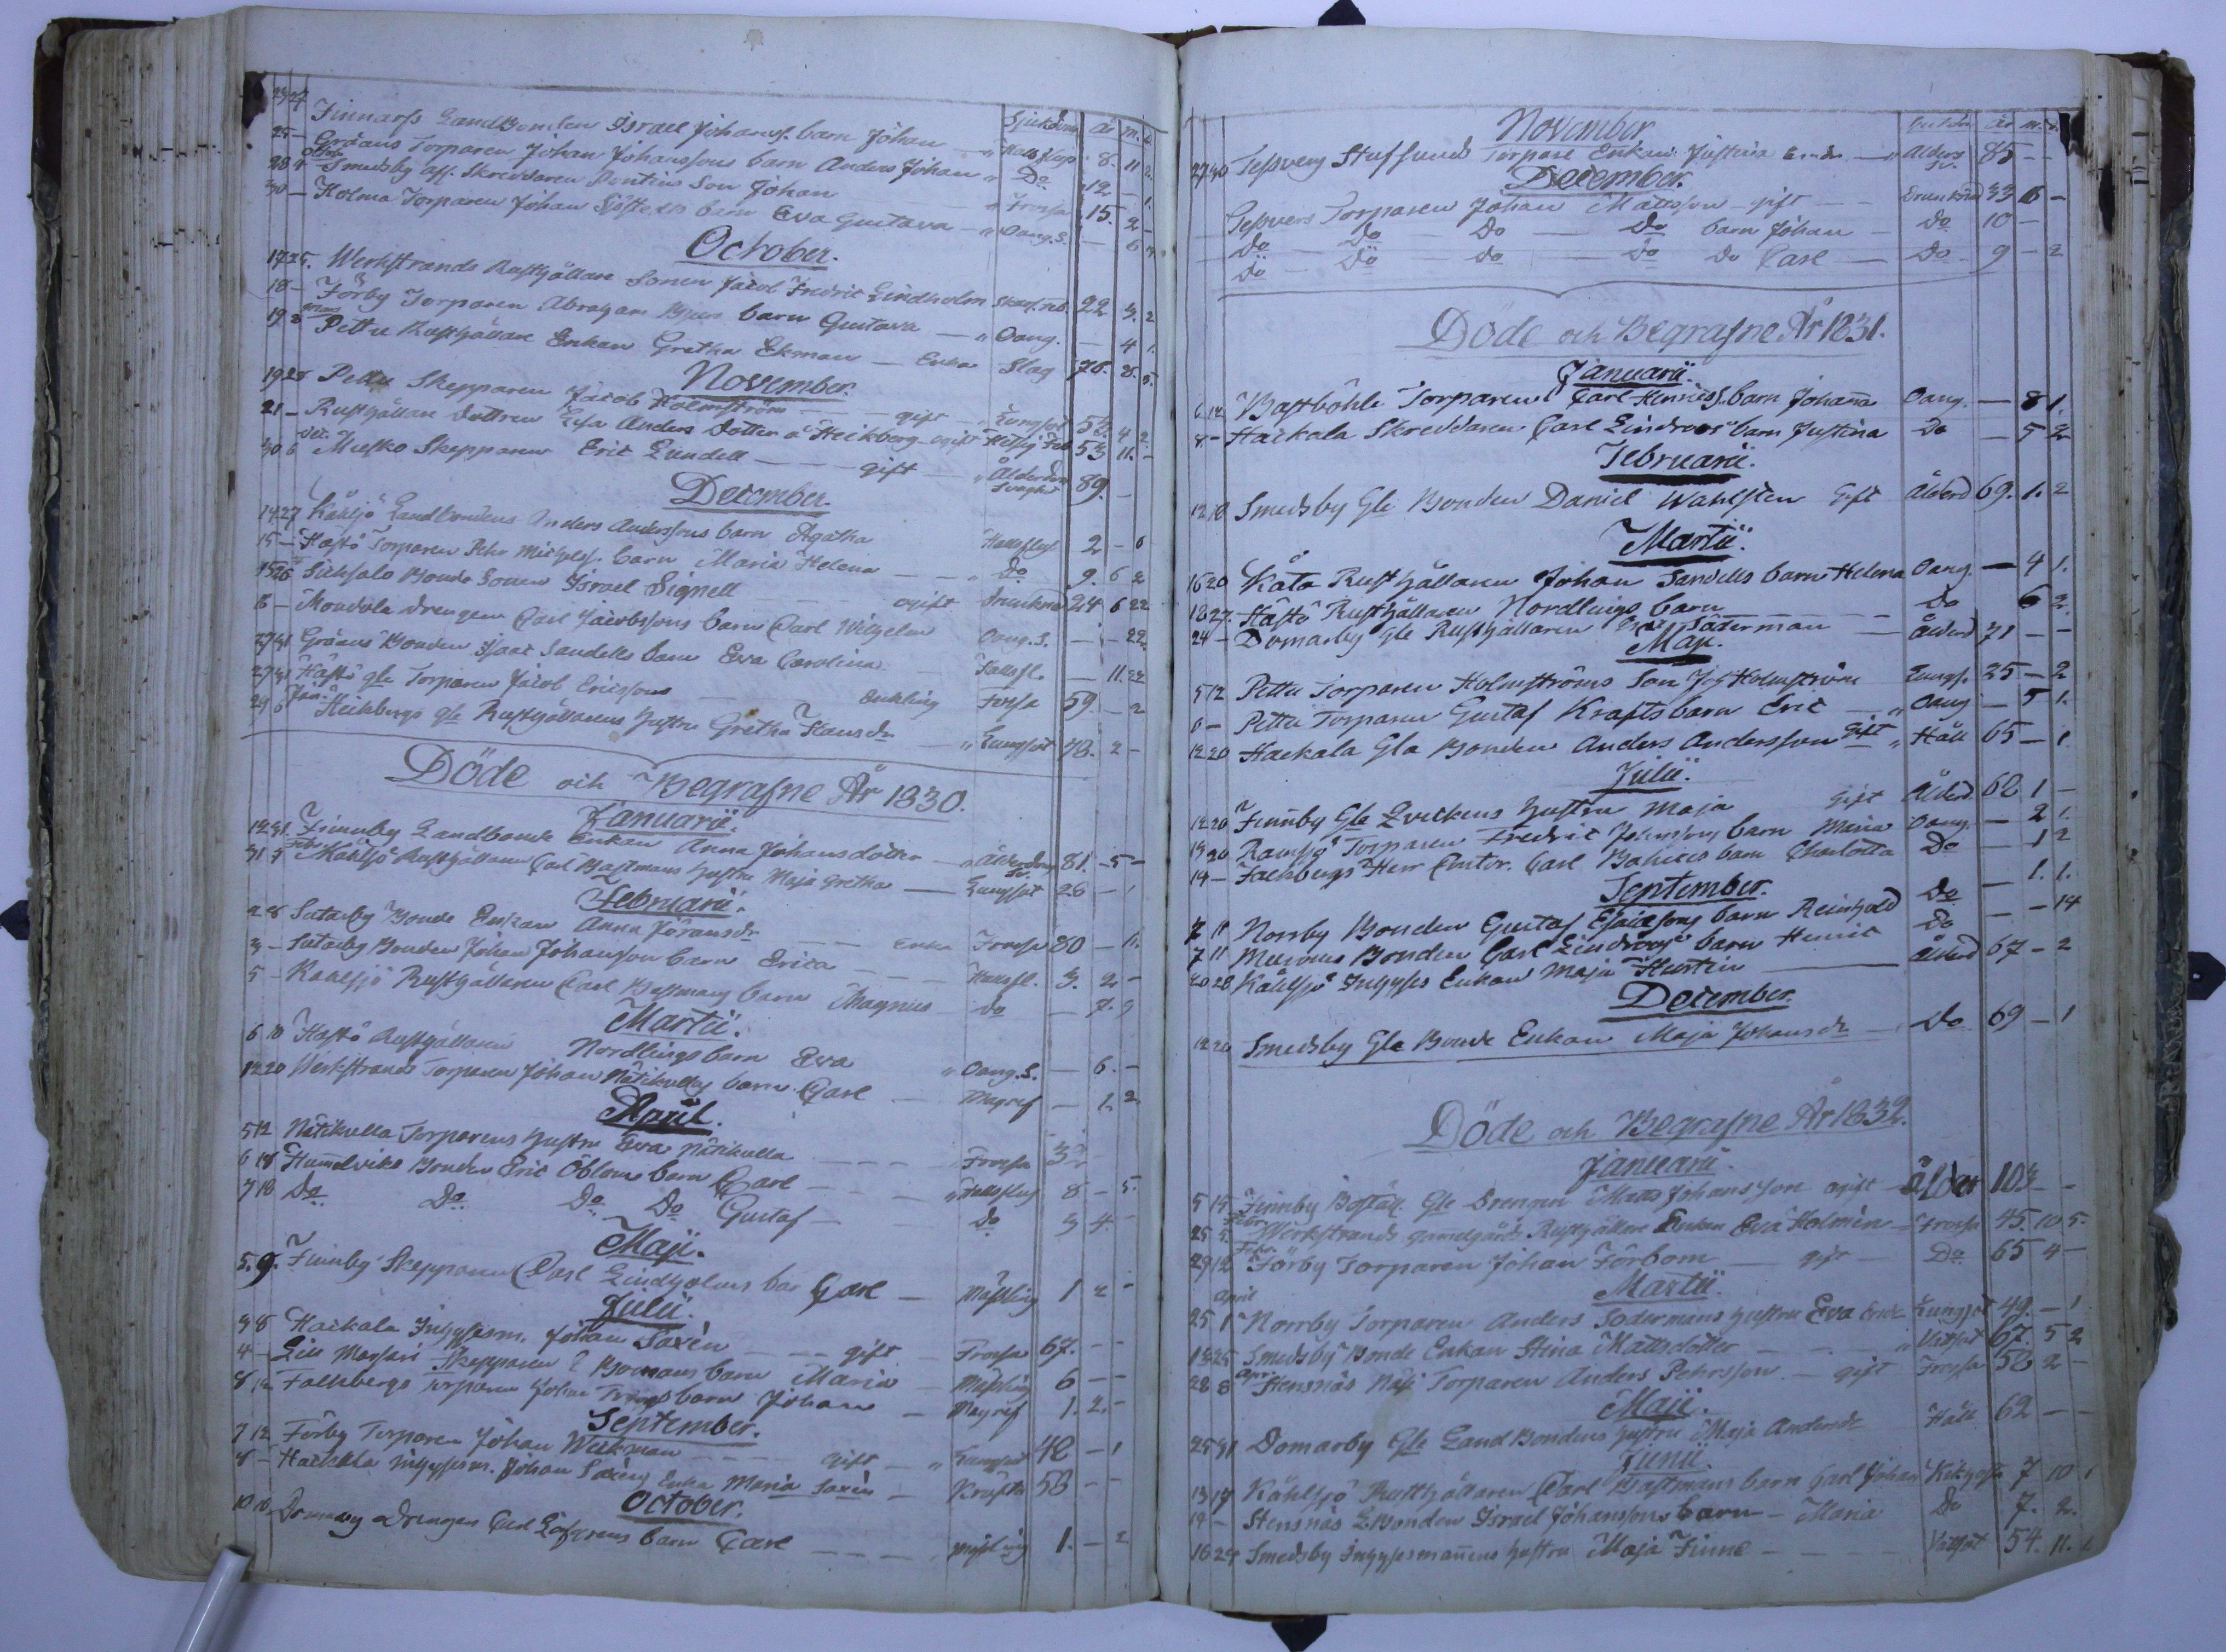 Sjukdom År m. d.
23 27 Finnarfs Landbonden Israel Johanss. barn Johan — Halsfluss 8. 11 2.
25 — Gröans Torparen Johan Johanssons barn Anders Johan " Do 12 — 1.
Octob.
28 4 Smedsby afl. Skreddaren Pontins Son Johan " Frossa 15. 2 —
30 — Holma Torparen Johan Sjöstedts barn Eva Gustava — " Oang. S. — 6
October.
17 25. Werkstrands Rusthållare Sonen Jacob Fredric Lindholm 22 3. 2
18 — Förby Torparen Abraham barn Gustava — " Oang. — 4 1.
19 Pettu Rusthållare Enkan Gretha Ekman — Enka Slag 78. 8. 5.
November.
19 28 Pettu Skepparen Jacob Holmström — gift — Lungsot 52. 4 2.
21 — Rusthållare Dottren Lisa Anders Dotter å Heikberg ogift 53 11. —
Dec.
30 6 Mielko Skepparen Eric Lindell — gift — " Ålderdoms Svaghet 89. —
December.
14 27 Kåhljö Landbondens Anders Anderssons barn Agatha Halsfluss 2 — 6
15 — Hästö Torparen Pehr Michelss. barn Maria Helena — " Do 9. 6 2
15 26 Bonde Sonen Israel Signell ogift Drunknad 24 6 22
18 — Drengen Carl Jacobssons barn Carl Wilhelm Oang. S. — — 22.
27 31 Gröans Bonden Isaac Sandells barn Eva Carolina Halsfl. — 11. 22
27 31 Hästö gle Torparen Jacob Ericsson Enkling Frossa 59 — 2
Jan.
29 6 Heikbergs gle Rusthållarens hustru Gretha Hansdr " Lungsot 78. 2 —
Döde och Begrafne År 1830.
Januarii.
12 31. Finnby Landbonde Enkan Anna Johansdotter — " Ålderdoms Sv. 81. — 5 —
Febr.
31 7 Kåhljö Rusthållaren Carl Bastmans hustru Maja Gretha — Lungsot 28 — 1
Februarii.
2 8 Satarby Bonde Enkan Anna Göransdr — Enka Frossa 80 — 11.
3 — Satarby Bonden Johan Johansson barn Erica — Halsfl. 3. 2 —
5 — Kahlsjö Rusthållaren Carl Bastmans barn Magnus Do — 7. 9
Martii.
6 10 Hästö Rusthållaren Nordlings barn Eva " Oang. S. — 6. —
12 20 Werkstrands Torparen Johan Nätikullas barn Carl — Magref — 1. 2
April.
5 12 Nätikulla Torparens hustru Eva Nätikulla — Frossa 32
6 18 Hummelviks Bonden Eric Öbloms barn Carl — " Halsfluss 8 — 5.
7 18 Do Do Do Do Gustaf — Do 3 4. —
Maji.
5. 9. Finnby Skepparen Carl Lindholms bar Carl — Mässling 1 2 —
Julii.
3 8 Haikala Inhysesm. Johan Saxén — gift Frossa 67. — —
4 — Lill Massari Skepparen E Bomans barn Maria — Mässling 6 — —
8 12 Falkbergs Torparen Johan barn Johan — Magref 1. 2. —
September.
7 12 Förby Torparen Johan Weckman — gift — " Lungsot 42 — 1
8 — Haikala inhysesm. Johan Saxéns Enka Maria Saxén — Kräfta 58 — —
October.
10 16. Domarby Drengen Carl Löfgrens barn Carl — Mässling 1. — 2
November Sjukdom År m. d.
27 30 Tessvers Torpare Enkan Justina — " Ålders Sv. 85 — —
December.
Tessvers Torparen Johan Mattsson — gift — — Drunknad 33 6 —
Do — Do — Do — Do barn Johan — Do 10 —
Do — Do — do — Do Do Carl — Do 9 — 2
Döde och Begrafne År 1831.
Januarii.
6 12 Bastböhle Torparens Carl Henricss. barn Johanna Oang. — 8 1.
8 — Haikala Skreddaren Carl Lindroos barn Justina Do — 5 2
Februarii.
12 18 Smedsby Gle Bonden Daniel Wahlsten Gift Ålderd 69. 1. 2
Martii.
16 20 Kåta Rusthållaren Johan Sandells barn Helena Oang. — 4 1.
18 27. Hästö Rusthållaren Nordlings barn — Do 6 2.
24 — Domarby gle Rusthållaren Söderman — Ålderd 71 — —
Maji.
5 12 Pettu Torparen Holmströms Son Holmström Lungs. 25 — 2
6 — Pettu Torparen Gustaf Krafts barn Eric — " Oang — 5 1.
12 20 Haikala Gla Bonden Anders Andersson Gift " Håll 65 — 1
Julii.
12 20 Finnby Gle hustru Maja Gift Ålderd. 62 1 —
19 20 Ramsjö Torparen Fredric Johanssons barn Maria Oang. — 2 1.
19 — Falkbergs Herr Cantor. Carl barn Charlotta Do — 1 2
September.
7 11 Norrby Bonden Gustaf Esaiessons barn Reinhold Do — 1. 1.
7 11 Bonden Carl Lindroos barn Henric Do — — 14
20 28 Kåhlsjö Inhyses Enkan Maja Hurtin — Ålderd 67 — 2
December.
12 20 Smedsby Gle Bonde Enkan Maja Johansdr — Do 69 — 1
Döde och Begrafne År 1832.
Januarii.
5 15 Finnby Boställ. Gle Drengen Matts Johansson ogift ålder 103 — —
Febr.
25 5. Werkstrands gamelgårds Rusthållare Enkan Eva Holmén — Frossa 45. 10 5.
Febr.
29 12 Förby Torparen Johan Förbom — gift — Do 65 4 —
Martii.
April
25 1 Norrby Torparen Anders Södermans hustru Eva Lungsot 49. — 1
18 25 Smedsby Bonde Enkan Stina Mattsdotter — " Vatsot 67. 5 2
Apr.
28 8 Stensnäs Torparen Anders Pehrsson. — gift Frossa 52 2 —
Maji.
25 31 Domarby Gle Land Bondens hustru Maja Andersdr Håll 62 — —
Junii.
13 17 Kåhlsjö Rusthållaren Carl Bastmans barn Carl Johan Kikhosta 7 10 1
14 — Stensnäs L. Bonden Israel Johanssons barn — Maria Do 7. 2.
16 24 Smedsby Inhysesmanens hustru Maja Finne — Vatsot 54. 11.